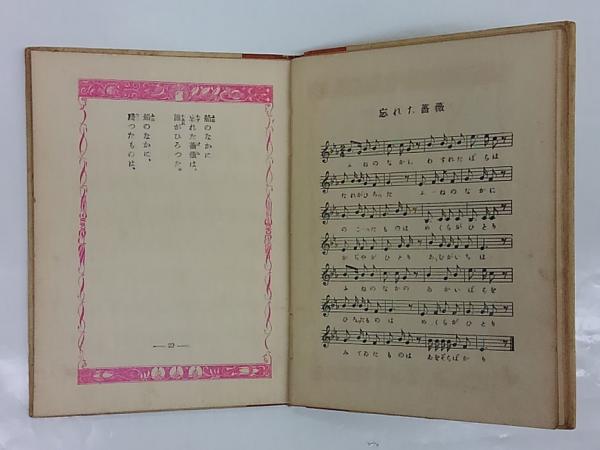 船のなかに
忘れた薔薇は、
誰がひろつた。
船のなかに、
殘つたものは、
忘れた薔薇
ふねのなかに わすれたばらは
たれがひろった ふーねのなかに
のこったものは めくらがひとり
かぢやがひとり あうむがいちは
ふねのなかの あかいばらを
ひろたものは めくらがひとり
みてゐたものは あをぞらばかり